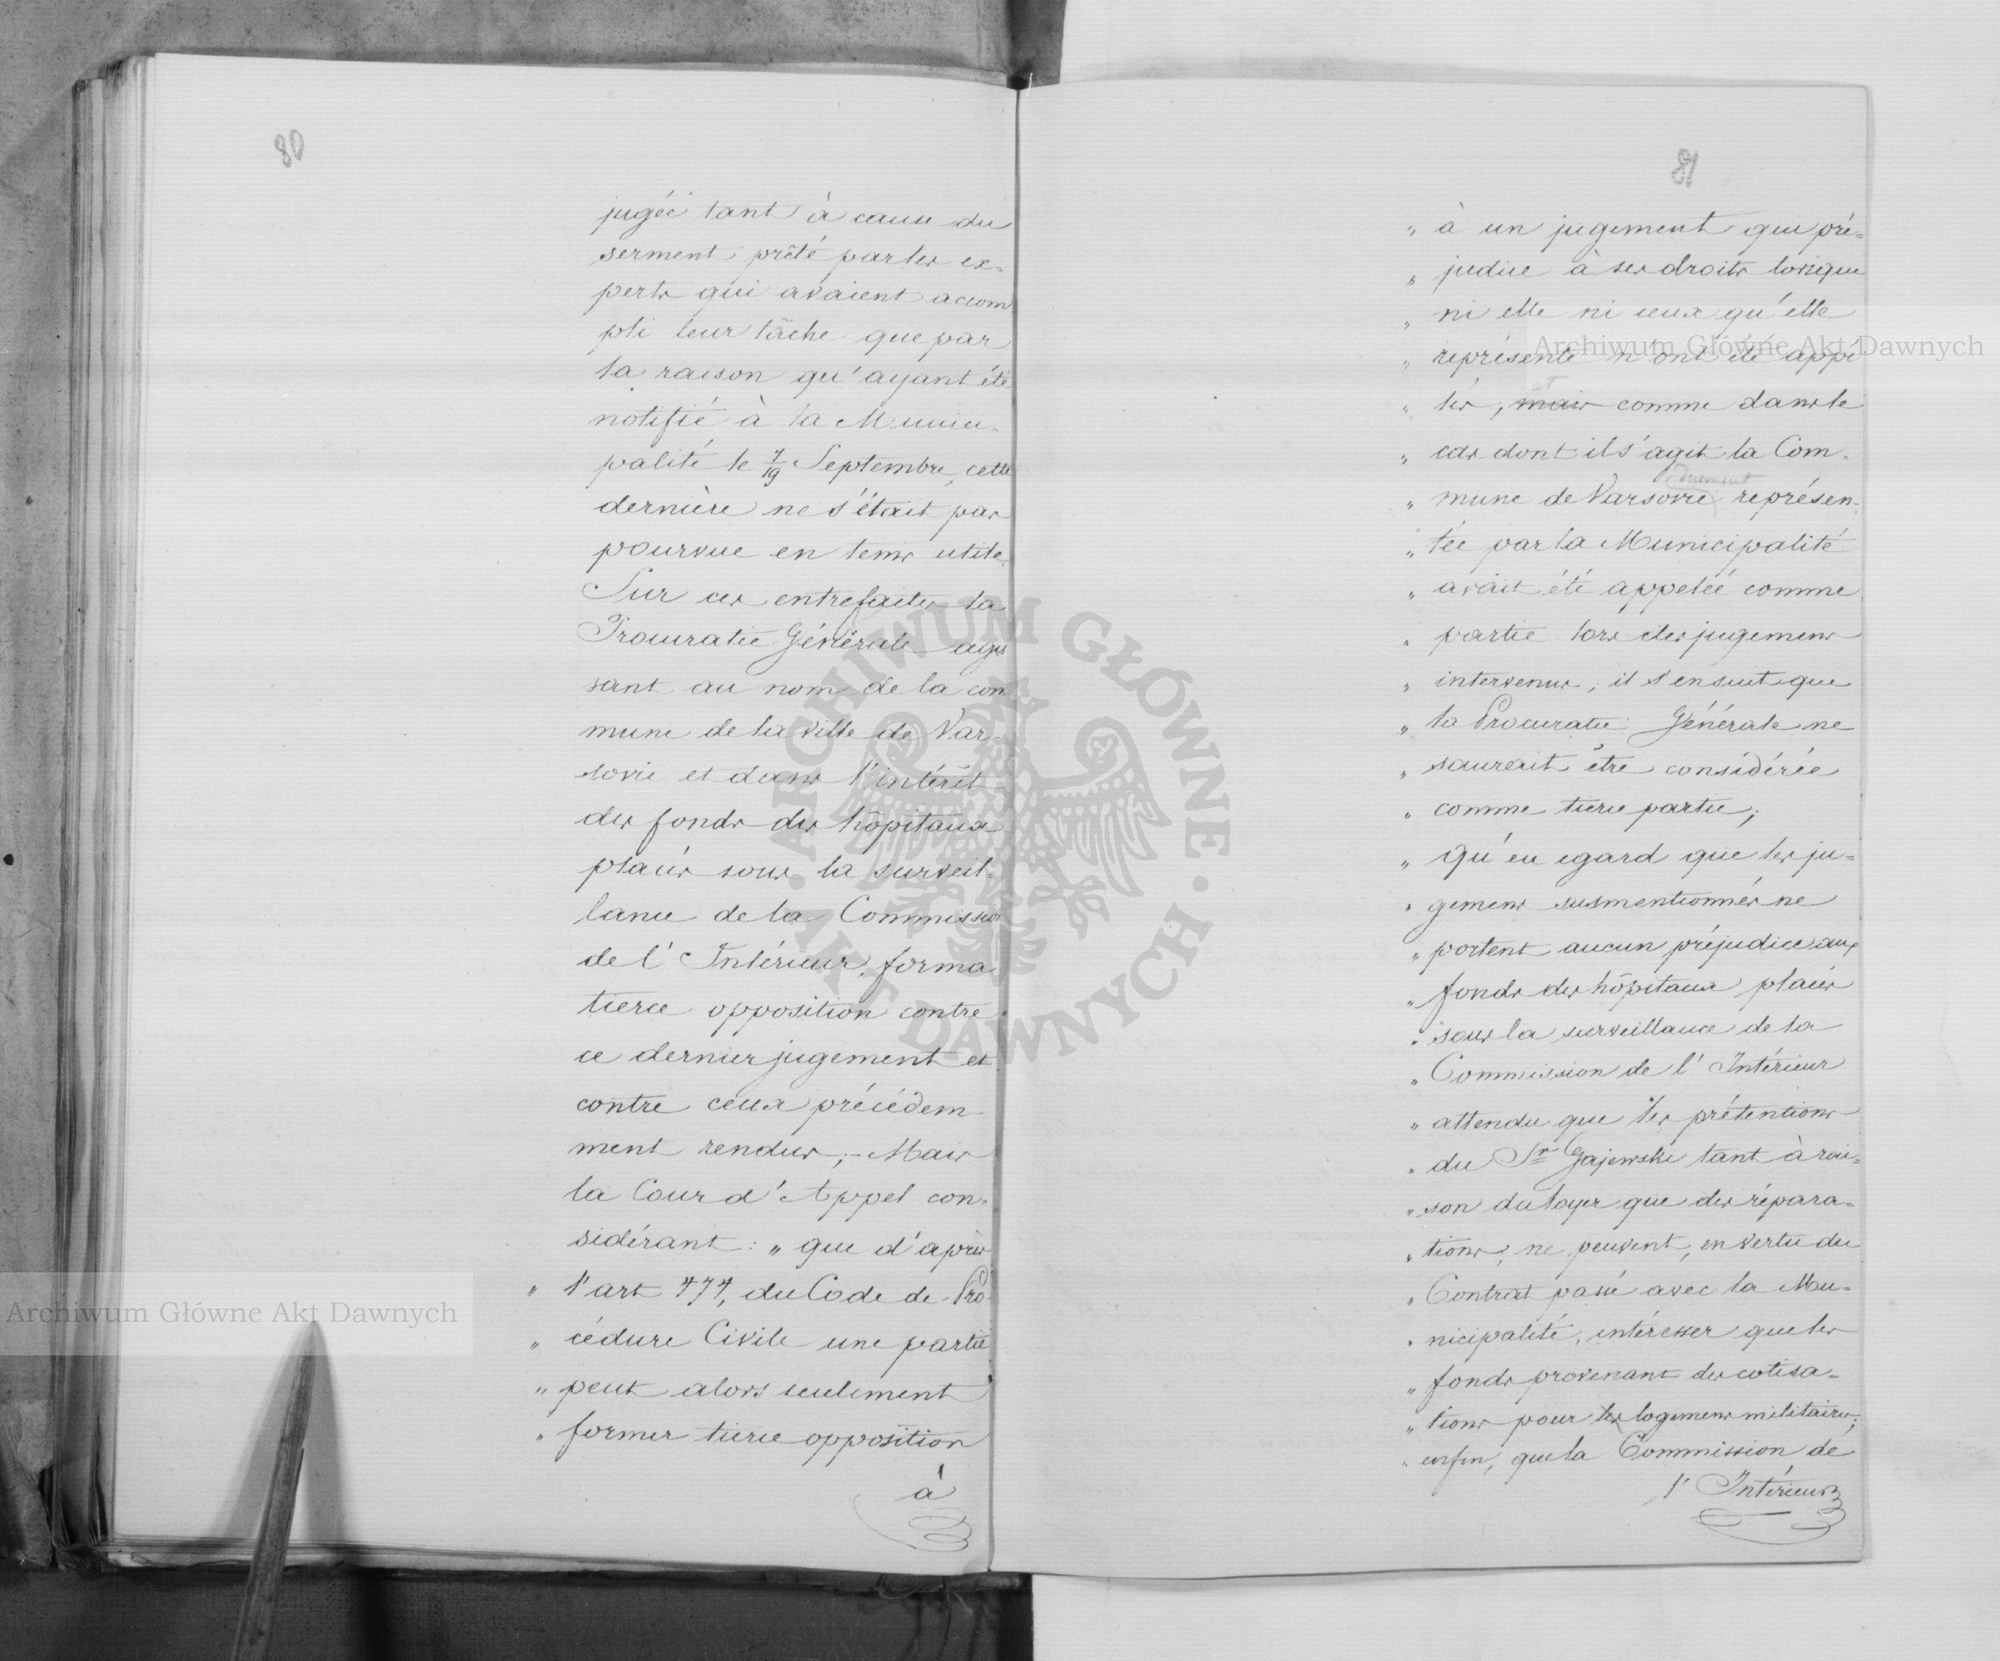 80
jugée tant à cause du
serment prêté par les ex-
perts qui avaient accom
pli leur tâche que par
la raison qu'ayant été
notifié à la Munici-
palité le 7/19 Septembre, cette
dernière ne s'était pas
pourvue en tems utile.
Sur ces entrefaites la
Procuratie Générale agis
sant au nom de la com
mune de la ville de Var-
sovie et dans l'intérêt
des fonds des hôpitaux
placés sous la surveil-
lance de la Commission
de l'Intérieur, forma
tierce opposition contre
ce dernier jugement et
contre ceux précédem-
ment rendus; - Mais
la Cour d'Appel con-
sidérant: „ que d'après
„ l'art 474, du Code de Pro
„ cédure Civile une partie
„ peut alors seulement
„ former tierce opposition
à
81
„ à un jugement qui pré-
„ judice à ses droits lorsque
„ ni elle ni ceux qu'elle
„ représente n'ont été appe
„ lés, mais et comme dans le
„ cas dont il s'agit la Com-
„ mune de Varsovie duement représen-
„ tée par la Municipalité
„ avait été appelée comme
„ partie lors des jugemens
„ intervenus, il s'ensuit que
„ la Procuratie Générale ne
„ saurait être considérée
„ comme tierce partie;
„ qu'eu egard que les ju-
„ gemens susmentionnés ne
„ portent aucun préjudice aux
„ fonds des hôpitaux placés
„ sous la surveillance de la
„ Commission de l'Intérieur
„ attendu que les prétentions
„ du Sr Gajewski tant à rai-
„ son du loyer que des répara-
„ tions, ne peuvent, en vertu du
„ Contrat passé avec la Mu-
„ nicipalité, intéresser que les
„ fonds provenant des cotisa-
„ tions pour les logemens militaires;
„ enfin, que la Commission de
l'Intérieur
Archiwum Główne Akt Dawnych
Archiwum Główne Akt Dawnych
ARCHIWUM GŁÓWNE · AKT DAWNYCH ·